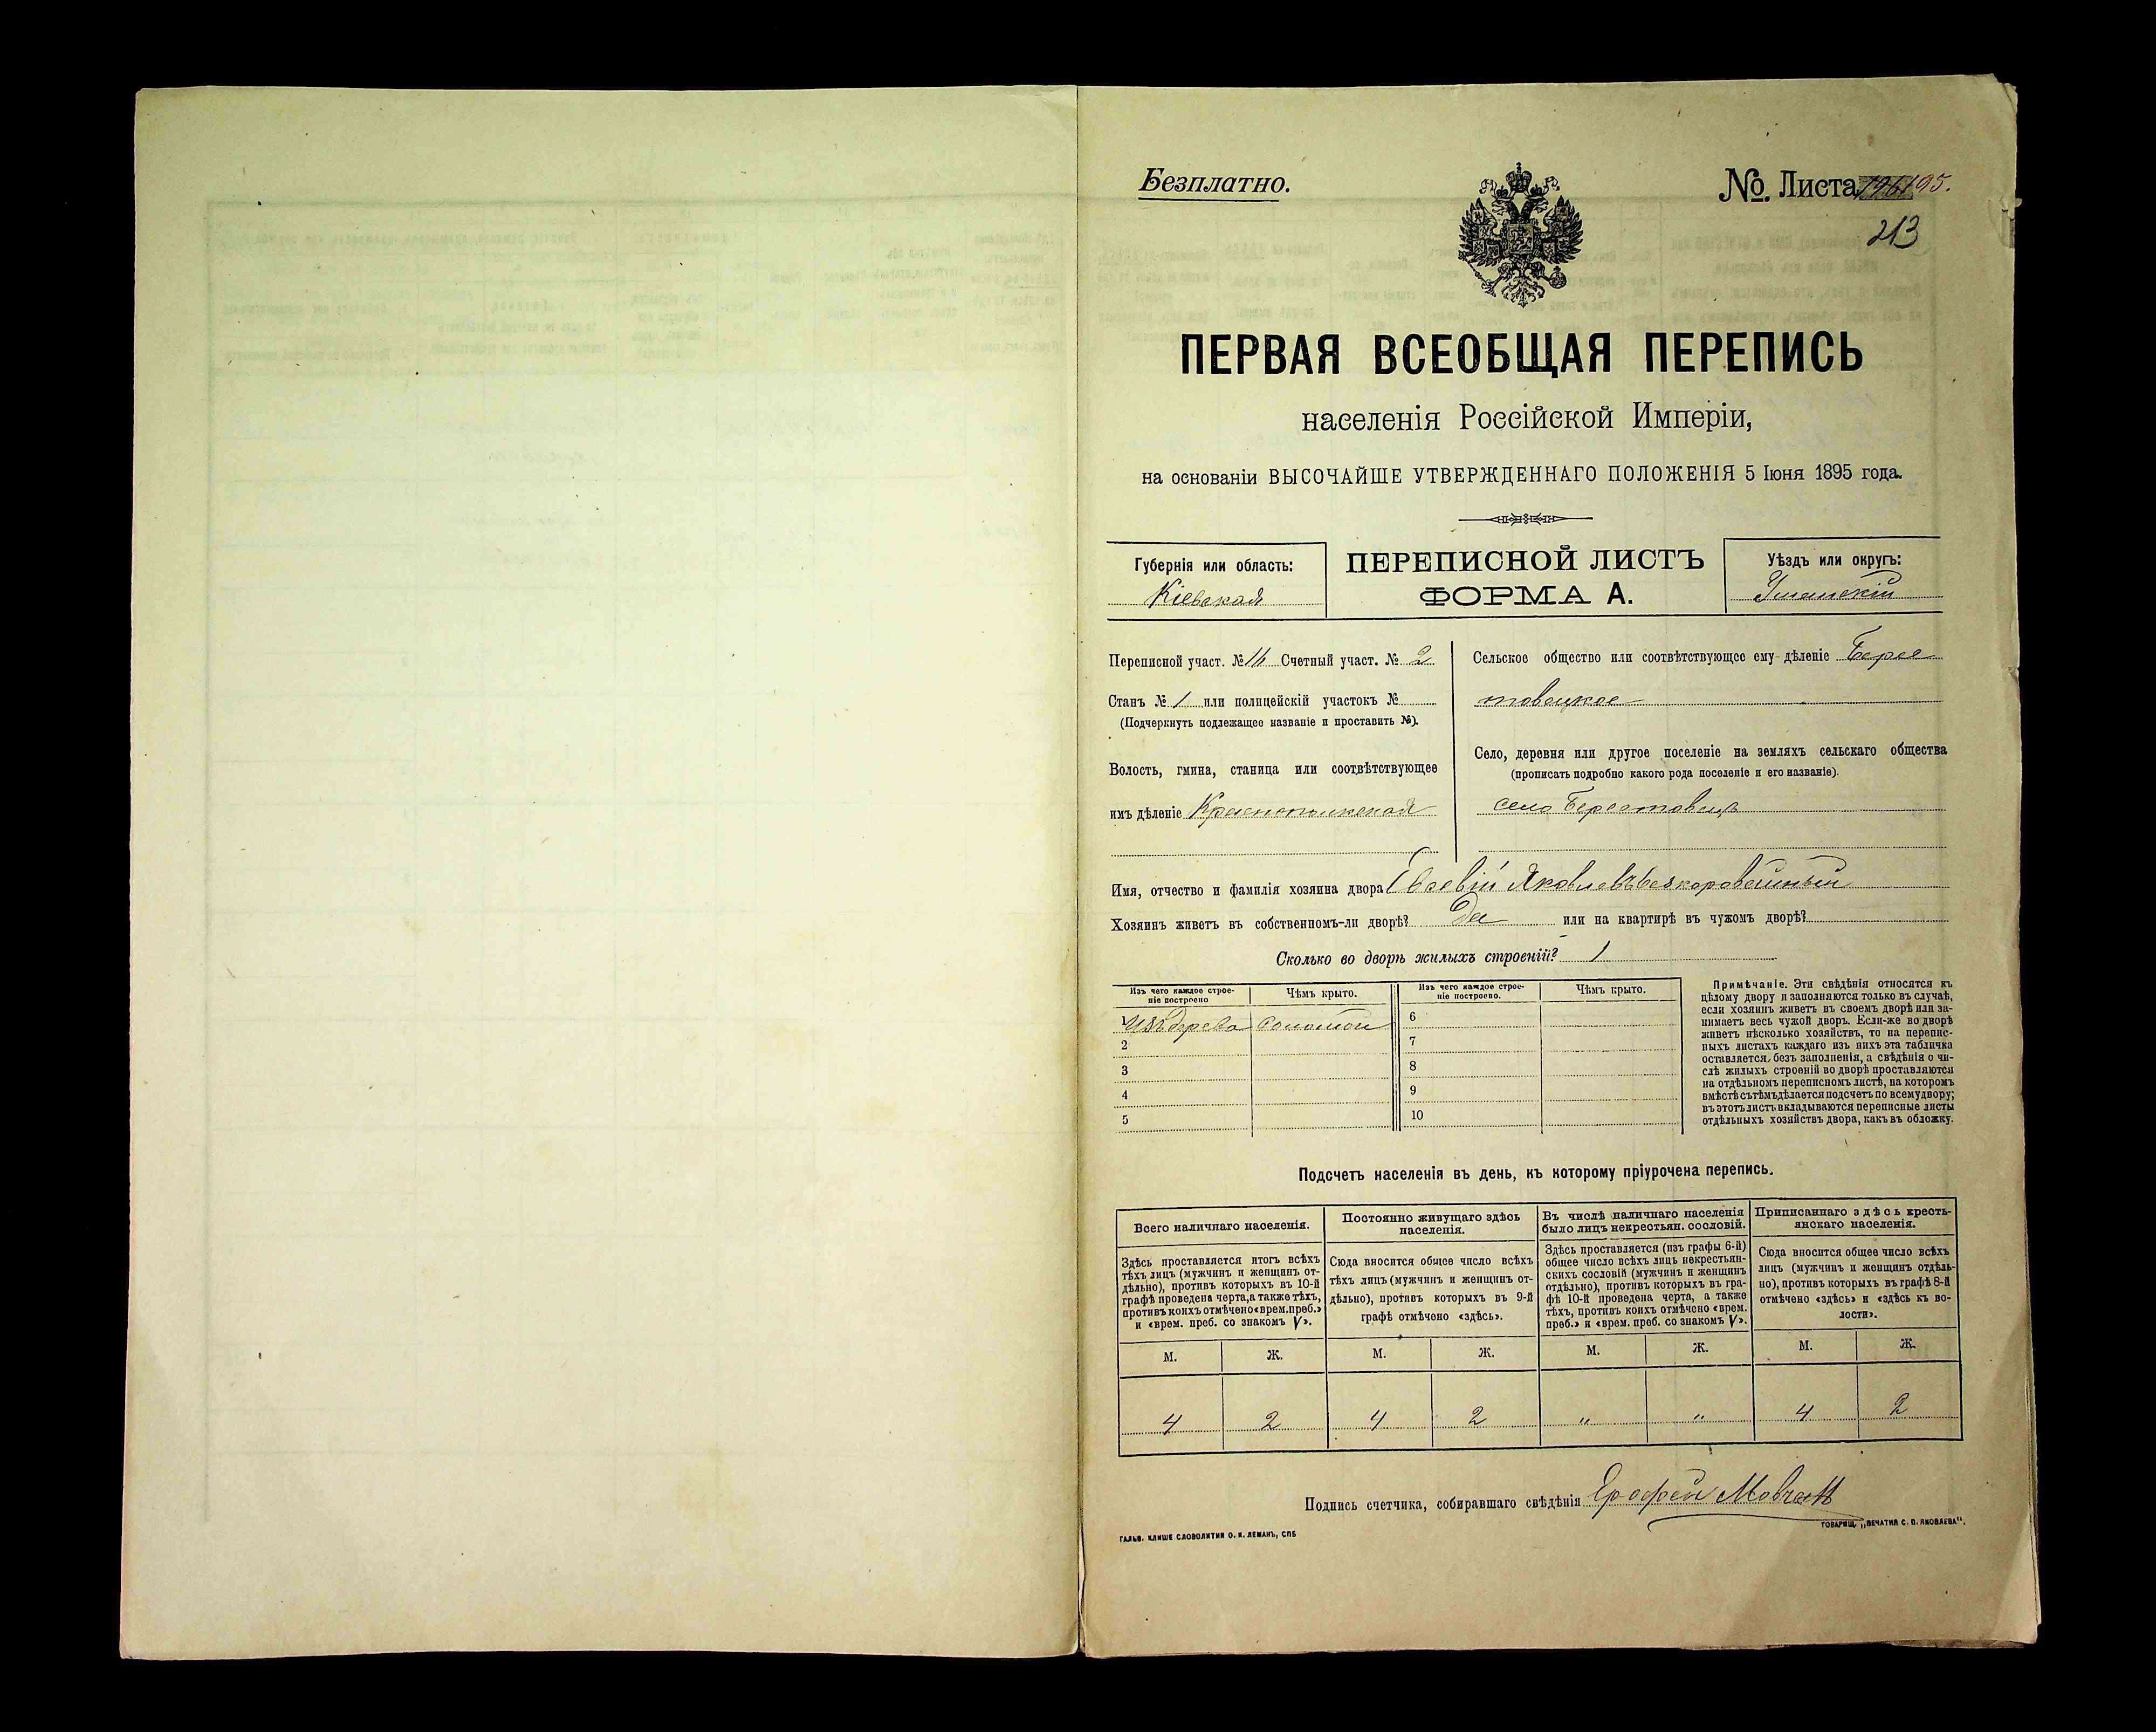 Безплатно.
№. Листа 195.
213
ПЕРВАЯ ВСЕОБЩАЯ ПЕРЕПИСЬ
населенія Россійской Имперіи,
на основаніи ВЫСОЧАЙШЕ УТВЕРЖДЕННАГО ПОЛОЖЕНІЯ 5 Іюня 1895 года.
Губернія или область:
Кіевская
ПЕРЕПИСНОЙ ЛИСТЪ
ФОРМА А.
Уѣздъ или округъ:
Уманскій
Переписной участ. №16 Счетный участ. № 2
Станъ № 1 или полицейскій участокъ №
(Подчеркнуть подлежащее названіе и проставить №).
Волость, гмина, станица или соотвѣтствующее
имъ дѣленіе
Сельское общество или соотвѣтствующее ему дѣленіе Берес
товецкое
Село, деревня или другое поселеніе на земляхъ сельскаго общества
(прописать подробно какого рода поселеніе и его названіе).
село Берестовецъ
Имя, отчество и фамилія хозяина двора Евсевій Яковлевъ Безкоровайный
Хозяинъ живетъ въ собственномъ-ли дворѣ? Да или на квартирѣ въ чужомъ дворѣ?
Сколько во дворѣ жилыхъ строеній? 1
Изъ чего каждое строе-
ніе построено
Чѣмъ крыто.
1 Изъ дерева соломой
2
3
4
5
Изъ чего каждое строе-
ніе построено.
Чѣмъ крыто.
6
7
8
9
10
Примѣчаніе. Эти свѣдѣнія относятся къ
цѣлому двору и заполняются только въ случаѣ,
если хозяинъ живетъ въ своемъ дворѣ или за-
нимаетъ весь чужой дворъ. Если-же во дворѣ
живетъ нѣсколько хозяйствъ, то на перепис-
ныхъ листахъ каждаго изъ нихъ эта табличка
оставляется безъ заполненія, а свѣдѣнія о чи-
слѣ жилыхъ строеній во дворѣ проставляются
на отдѣльномъ переписномъ листѣ, на которомъ
вмѣстѣ съ тѣмъ дѣлается подсчетъ по всему двору;
въ этотъ листъ вкладываются переписные листы
отдѣльныхъ хозяйствъ двора, какъ въ обложку.
Подсчетъ населенія въ день, къ которому пріурочена перепись.
Всего наличнаго населенія.
Здѣсь проставляется итогъ всѣхъ
тѣхъ лицъ (мужчинъ и женщинъ от-
дѣльно), противъ которыхъ въ 10-й
графѣ проведена черта, а также тѣхъ,
противъ коихъ отмѣчено «врем. преб.»
и «врем. преб. со знакомъ V».
М. Ж.
4 2
Постоянно живущаго здѣсь
населенія.
Сюда вносится общее число всѣхъ
тѣхъ лицъ (мужчинъ и женщинъ от-
дѣльно), противъ которыхъ въ 9-й
графѣ отмѣчено «здѣсь».
М. Ж.
4 2
Въ числѣ наличнаго населенія
было лицъ некрестьян. сословій.
Здѣсь проставляется (изъ графы 6-й)
общее число всѣхъ лицъ некрестьян-
скихъ сословій (мужчинъ и женщинъ
отдѣльно), противъ которыхъ въ гра-
фѣ 10-й проведена черта, а также
тѣхъ, противъ коихъ отмѣчено «врем.
преб.» и «врем. преб. со знакомъ V».
М. Ж.
" "
Приписаннаго здѣсь кресть-
янскаго населенія.
Сюда вносится общее число всѣхъ
лицъ (мужчинъ и женщинъ отдѣль-
но), противъ которыхъ въ графѣ 8-й
отмѣчено «здѣсь» и «здѣсь къ во-
лости».
М. Ж.
4 2
Подпись счетчика, собиравшаго свѣдѣнія Ерофей Мовчанъ
ГАЛЬВ. КЛИШЕ СЛОВОЛИТНИ О. И. ЛЕМАНЪ, СПБ
ТОВАРИЩ. „ПЕЧАТНЯ С. П. ЯКОВЛЕВА".